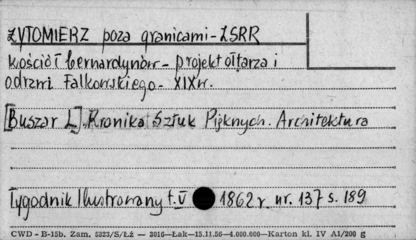 ŻYTOMIERZ poza granicami - ZSRR
kościół bernardynów - projekt ołtarza i
odrzwi Falkowskiego - XIX w.
[Buszar L]. Kronika Sztuk Pięknych. Architektura
Tygodnik Ilustrowany t. V 1862 r. nr. 137 s. 189
CWD - B-15b. Zam. 5323/S/Łż — 3016—Łak—15.11.56—4.000.000—Karton kl. IV A1/200 g